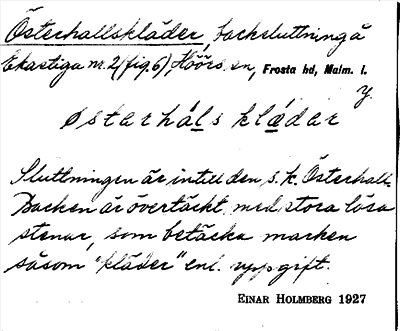 Österhallskläder, backsluttning å
Ekastiga nr. 2 (fig. 6), Höörs sn, Frosta hd, Malm. l.
y.
østarháls klǿdar
Sluttningen är intill den s. k. Österhall-
Backen är övertäckt med stora lösa
stenar, som betäcka marken
såsom "kläder" enl. uppgift.
EINAR HOLMBERG 1927